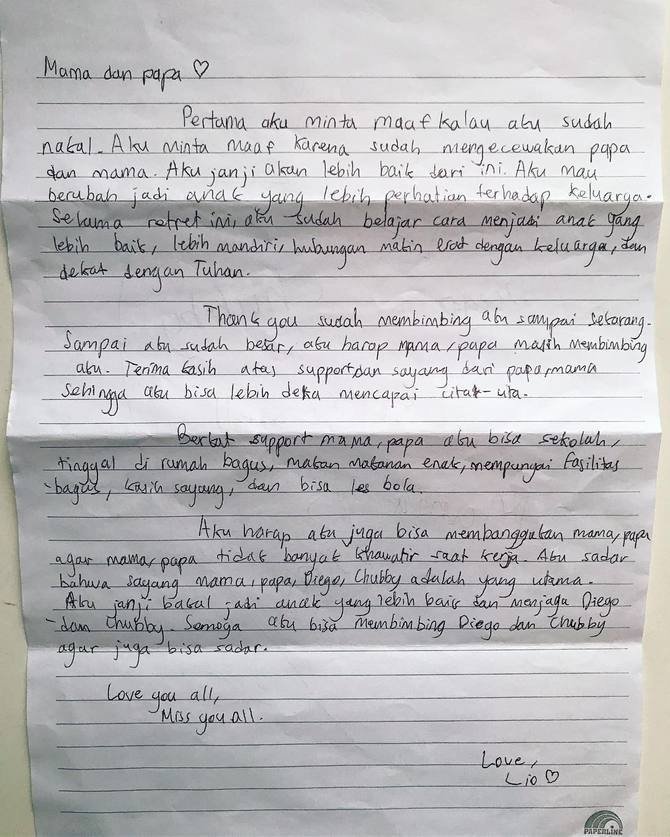 Mama dan papa ♡
Pertama aku minta maaf kalau aku sudah
nakal. Aku minta maaf karena sudah mengecewakan papa
dan mama. Aku janji akan lebih baik dari ini. Aku mau
berubah jadi anak yang lebih perhatian terhadap keluarga.
Selama retret ini, aku sudah belajar cara menjadi anak yang
lebih baik, lebih mandiri, hubungan makin erat dengan keluarga, dan
dekat dengan Tuhan.
Thank you sudah membimbing aku sampai sekarang.
Sampai aku sudah besar, aku harap mama, papa masih membimbing
aku. Terima kasih atas support dan sayang dari papa, mama
sehingga aku bisa lebih deka mencapai citak-cita.
Berkat support mama, papa aku bisa sekolah,
tinggal di rumah bagus, makan makanan enak, mempunyai fasilitas
bagus, kasih sayang, dan bisa les bola.
Aku harap aku juga bisa membanggakan mama, papa
agar mama, papa tidak banyak khawatir saat kerja. Aku sadar
bahwa sayang mama, papa, Diego, Chubby adalah yang utama.
Aku janji bakal jadi anak yang lebih baik dan menjaga Diego
dan Chubby. Semoga aku bisa membimbing Diego dan Chubby
agar juga bisa sadar.
Love you all,
Miss you all.
Love,
Lio ♡
PAPERLINE